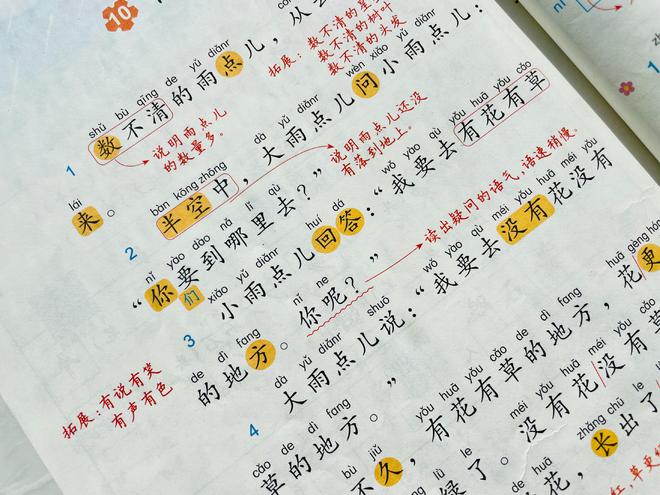 10
shǔ bù qīng de yǔ diǎnr
1 数不清的雨点儿，从
拓展：数不清的星
数不清的树叶
数不清的头发
说明雨点儿
的数量多。
lái
来。
bàn kōng zhōng dà yǔ diǎnr wèn xiǎo yǔ diǎnr
2 半空中，大雨点儿问小雨点儿：
说明雨点儿还没
有落到地上。
nǐ yào dào nǎ lǐ qù
“你要到哪里去？”
们
xiǎo yǔ diǎnr huí dá wǒ yào qù yǒu huā yǒu cǎo
3 小雨点儿回答：“我要去有花有草
de dì fang nǐ ne
的地方。你呢？”
读出疑问的语气，语速稍慢。
拓展：有说有笑
有声有色
dà yǔ diǎnr shuō wǒ yào qù méi yǒu huā méi yǒu
4 大雨点儿说：“我要去没有花没有
cǎo de dì fang
草的地方。”
bù jiǔ yǒu huā yǒu cǎo de dì fang huā gèng hóng
不久，有花有草的地方，花更
lǜ le méi yǒu huā méi yǒu cǎo
绿了。没有花没有草
huā zhǎng chū le
花，长出了